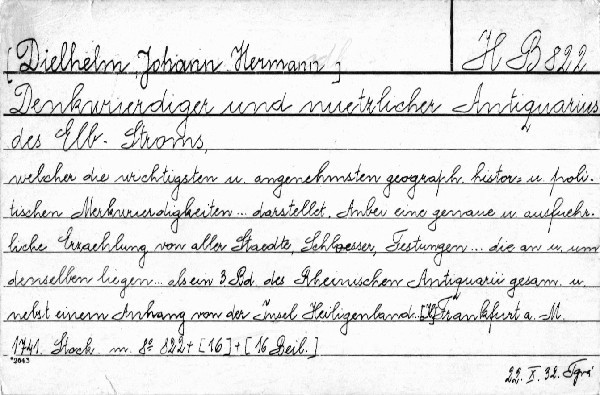 [Dielhelm, Johann Hermann] H B 822
Denkwuerdiger und nuetzlicher Antiquarius
des Elb-Stroms,
welcher die wichtigsten u. angenehmsten geograph. histor= u. poli-
tischen Merkwuerdigkeiten ... darstellet. Anbei eine genaue u. ausfuehr-
liche Erzaehlung von aller Staedte, Schloesser, Festungen ... die an u. um
denselben liegen ... als ein 3 Bd. des Rheinischen Antiquarii gesam. u.
nebst einem Anhang von der Insel Heiligenland. Frankfurt a.-M.
1741. Stock. m. 8° 822+[16]+[16 Beil.]
*2043
22. X. 32.